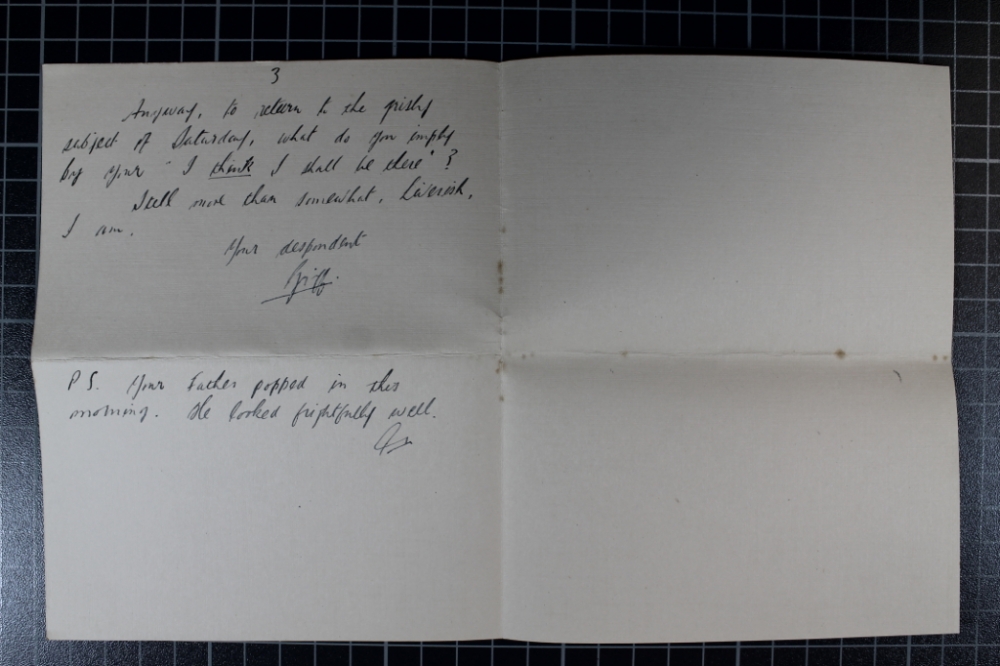 3
Anyway, to return to the grisly
subject of Saturday, what do you imply
by your "I think I shall be there"?
Still more than somewhat, liverish,
I am.
Your despondent
Griff.
P.S. Your Father popped in this
morning. He looked frightfully well.